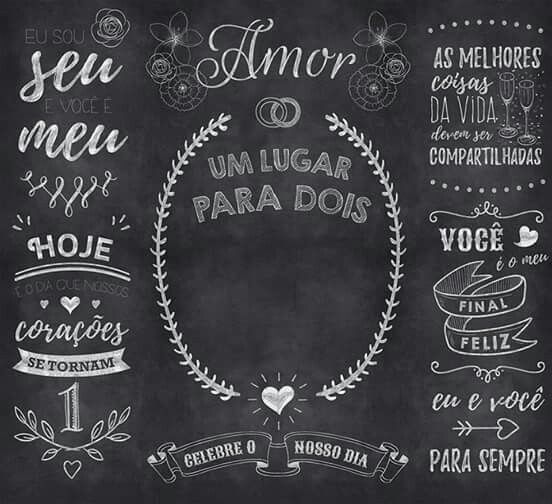 EU SOU
seu
E VOCÊ É
meu
HOJE
É O DIA QUE NOSSOS
corações
SE TORNAM
1
Amor
UM LUGAR
PARA DOIS
CELEBRE O NOSSO DIA
AS MELHORES
coisas
DA VIDA
devem ser
COMPARTILHADAS
VOCÊ
é o meu
FINAL
FELIZ
eu e você
PARA SEMPRE